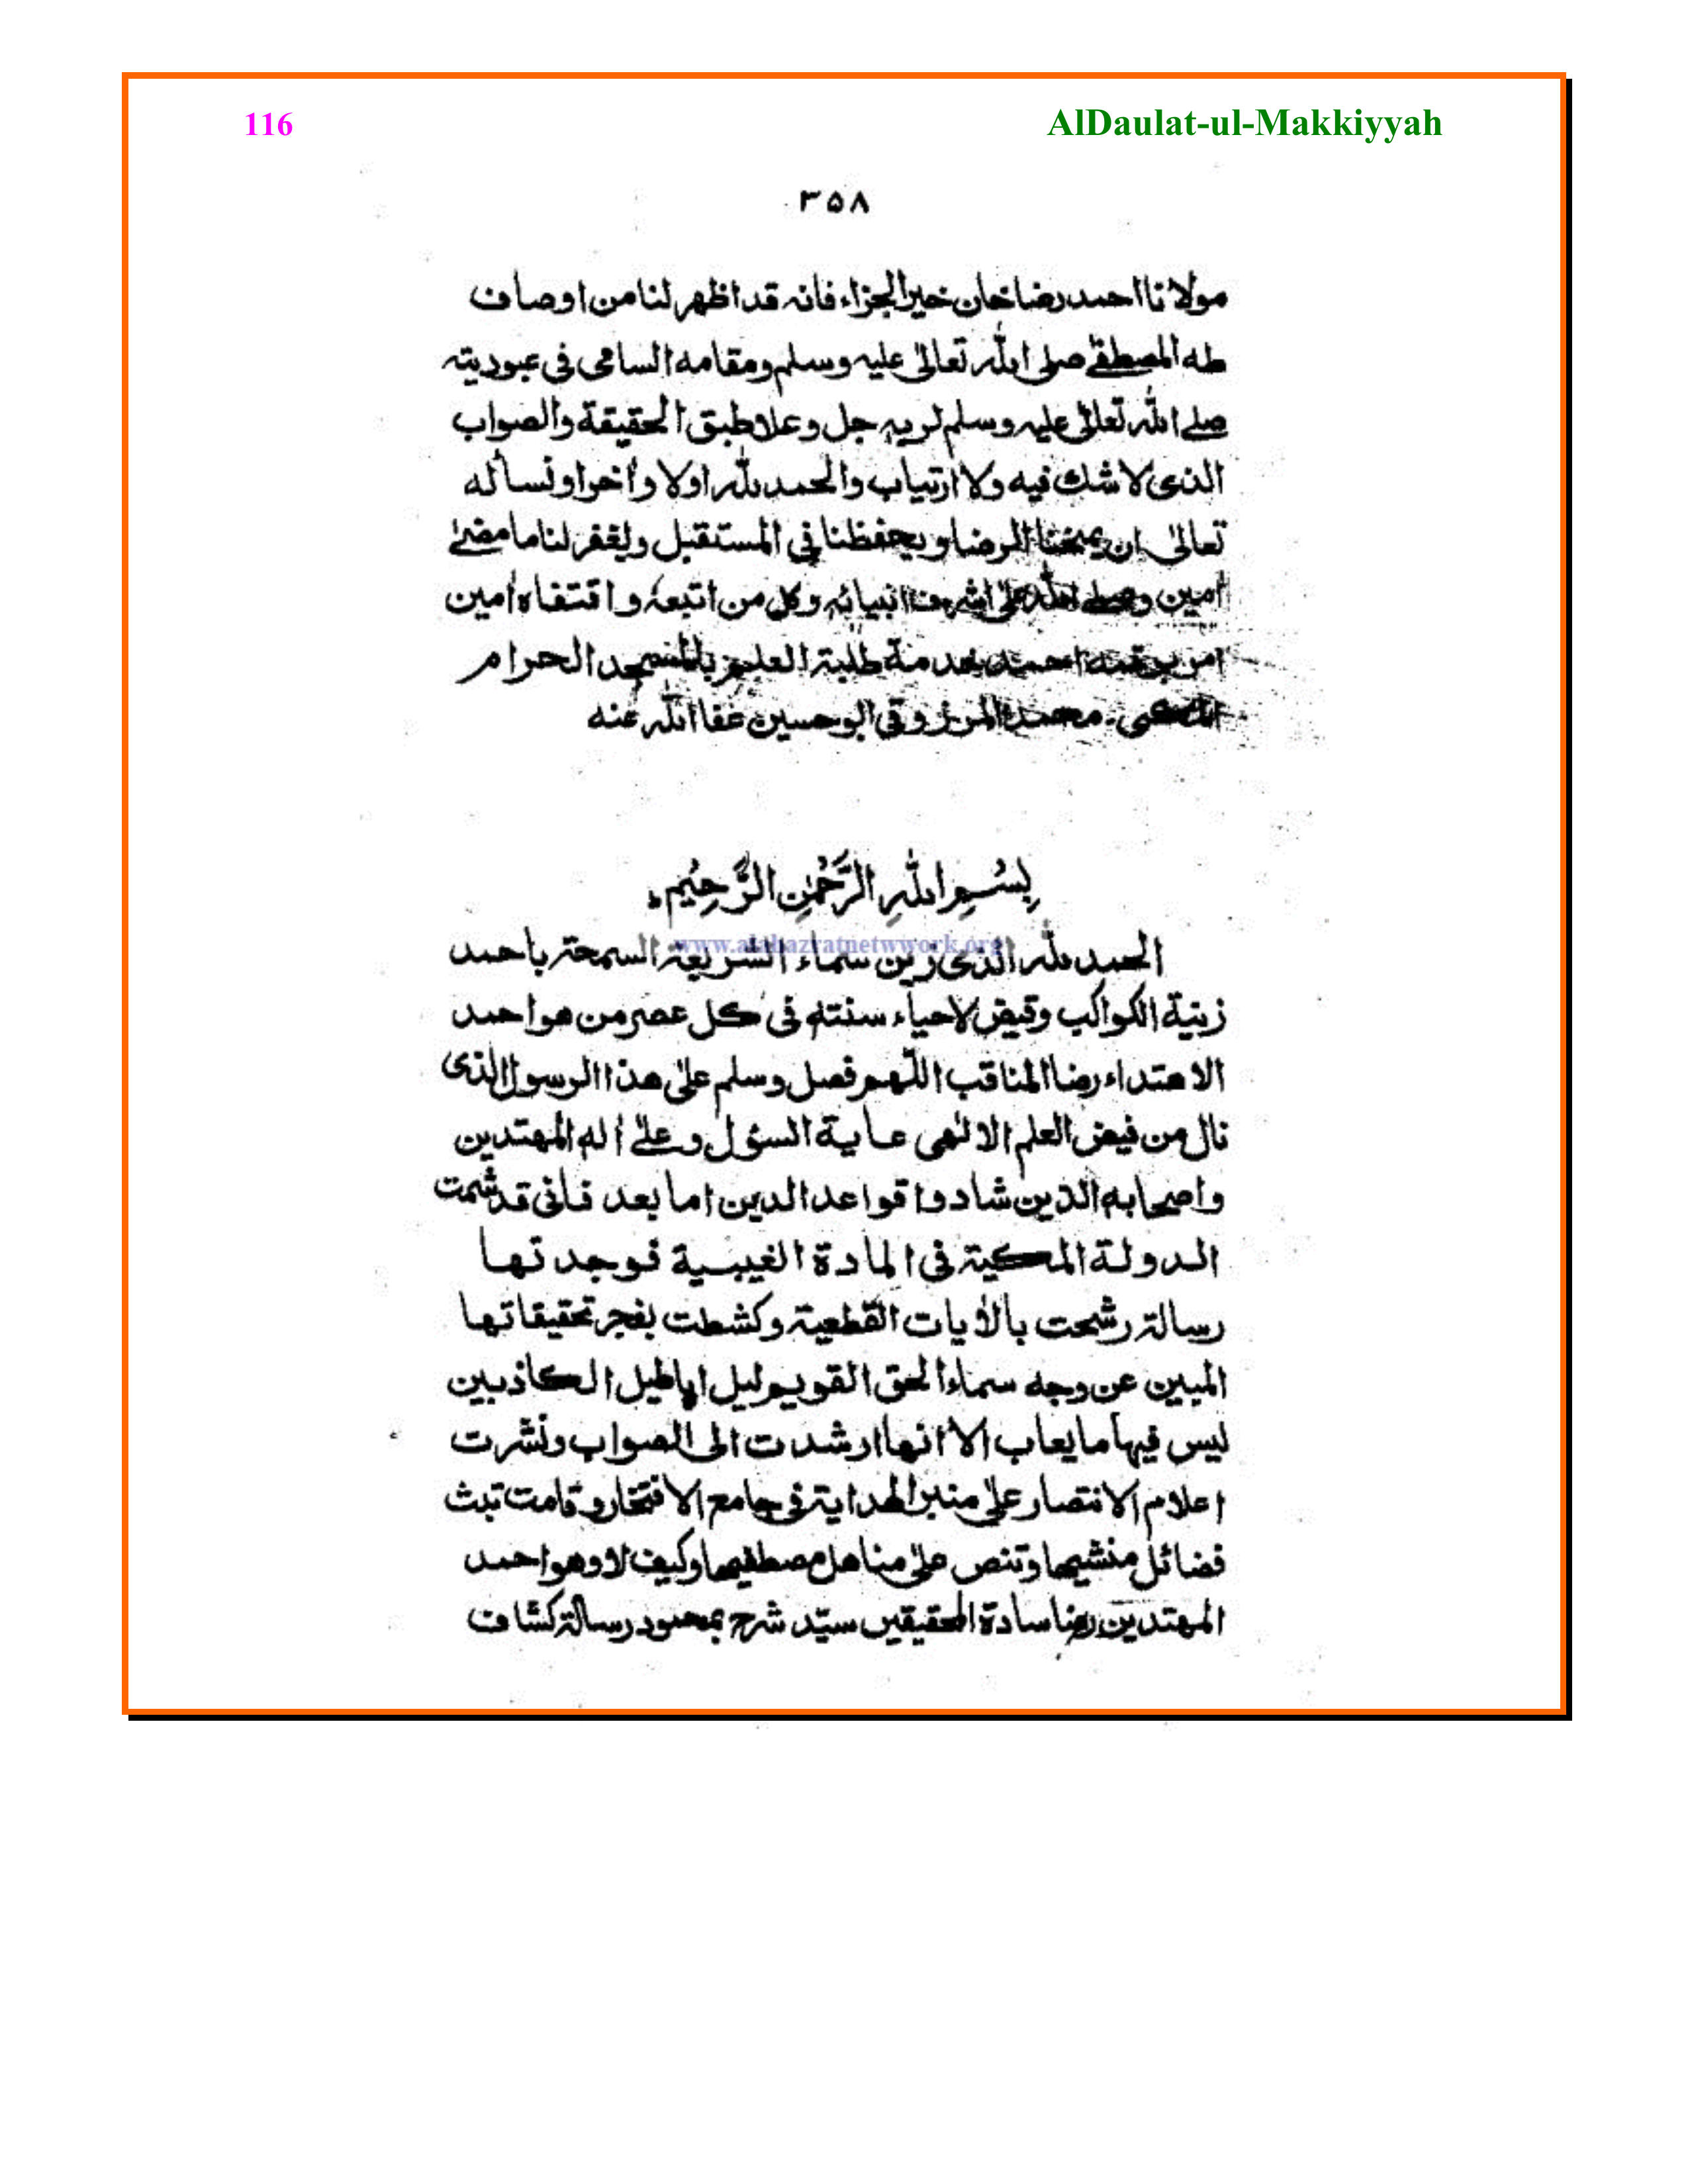 116
AlDaulat-ul-Makkiyyah
٣٥٨
مولانا احمد رضا خان خیر الجزاء فانہ قد اظھر لنا من اوصاف
طه المصطفے صلی اللہ تعالیٰ علیہ وسلم ومقامه السامی فی عبودیتہ
صلے اللہ تعالیٰ علیہ وسلم لربہ جل وعلا طبق الحقیقة والصواب
الذی لا شك فیه ولا ارتیاب والحمد للہ اولا وأخرا ونسأله
تعالیٰ ان یمنحنا الرضا ویحفظنا فی المستقبل ولیغفر لنا ما مضیٰ
أمین وصلے اللہ علیٰ اشرف انبیائہ وکل من اتبعہٗ واقتفاہ أمین
امر برقمه احمد خدمة طلبة العلم بالمسجد الحرام
المکی۔ محمد المرزوقی ابو حسین عفا اللہ عنه
بِسْمِ اللہِ الرَّحْمٰنِ الرَّحِیْمِ
www.alahazratnetwwork.org
الحمد للہ الذی زین سماء الشریعة السمحۃ باحمد
زینة الکواکب وقیض لاحیاء سنتہٖ فی کل عصر من ھو احمد
الاھتداء رضا المناقب اللّٰھم فصل وسلم علیٰ ھذا الرسول الذی
نال من فیض العلم الالٰھی عایة السؤل وعلےٰ أله المھتدین
واصحابه الذین شادوا قواعد الدین اما بعد فانی قد شمت
الدولة المکیة فی المادة الغیبیة فوجدتھا
رسالۃ رشحت بالاٰیات القطعیة وکشطت بفجر تحقیقاتھا
المبین عن وجه سماء الحق القویم لیل اباطیل الکاذبین
لیس فیھا ما یعاب الا انھا ارشدت الی الصواب ونشرت
اعلام الانتصار علیٰ منبر الھدایة فی جامع الافتخار وقامت تبث
فضائل منشیھا وتنص علیٰ مناھل مصطفیھا وکیف لا وھو احمد
المھتدین رضا سادة الحقیقیں سیّد شرح بمحمود رسالۃ کشاف